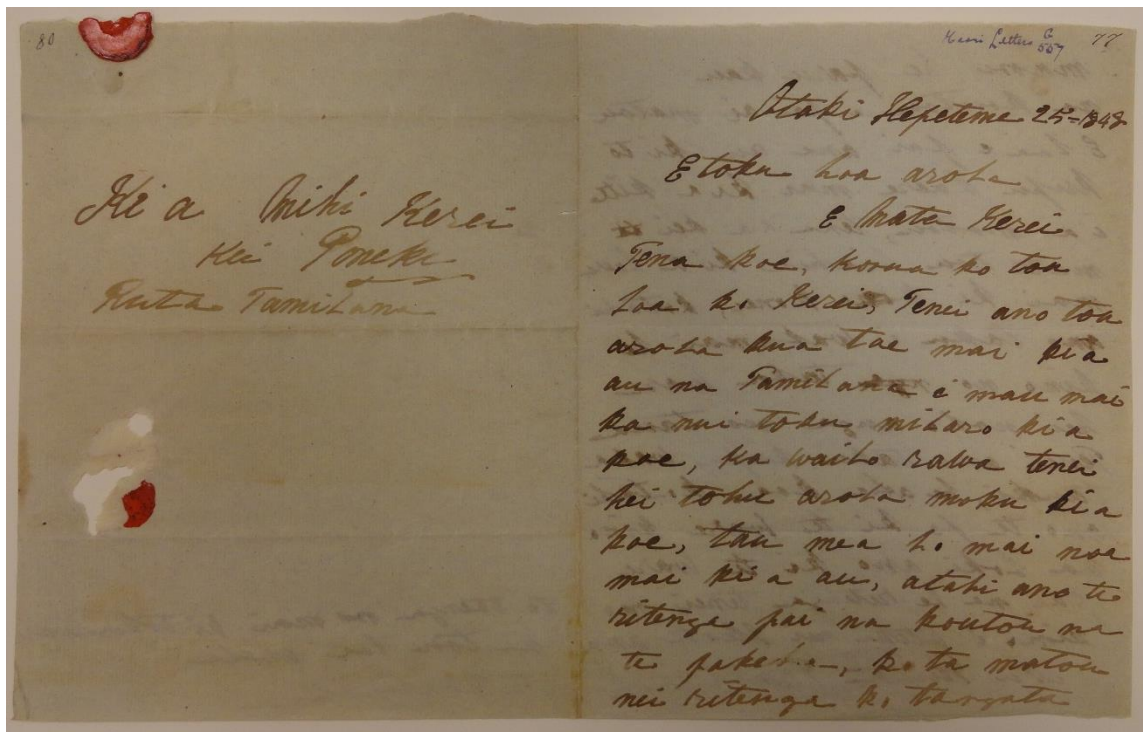 80
Ki a Mihi Kerei
Kei Poneke
Ruta Tamihana
Maori Letters G
557
77
Otaki Hepetema 25 - 1848
E toku hoa aroha
E Mata Kerei
Tena koe, korua ko toa
hoa ko Kerei, Tenei ano toa
aroha kua tae mai kia
au na Tamihana i mau mai
ka nui toku miharo kia
koe, ka waiho rawa tenei
hei tohu aroha moku kia
koe, tau mea ho mai noa
mai ki a au, atahi ano te
ritenga pai na koutou na
te pakeha, ko ta matou
nei ritenga ko tangata